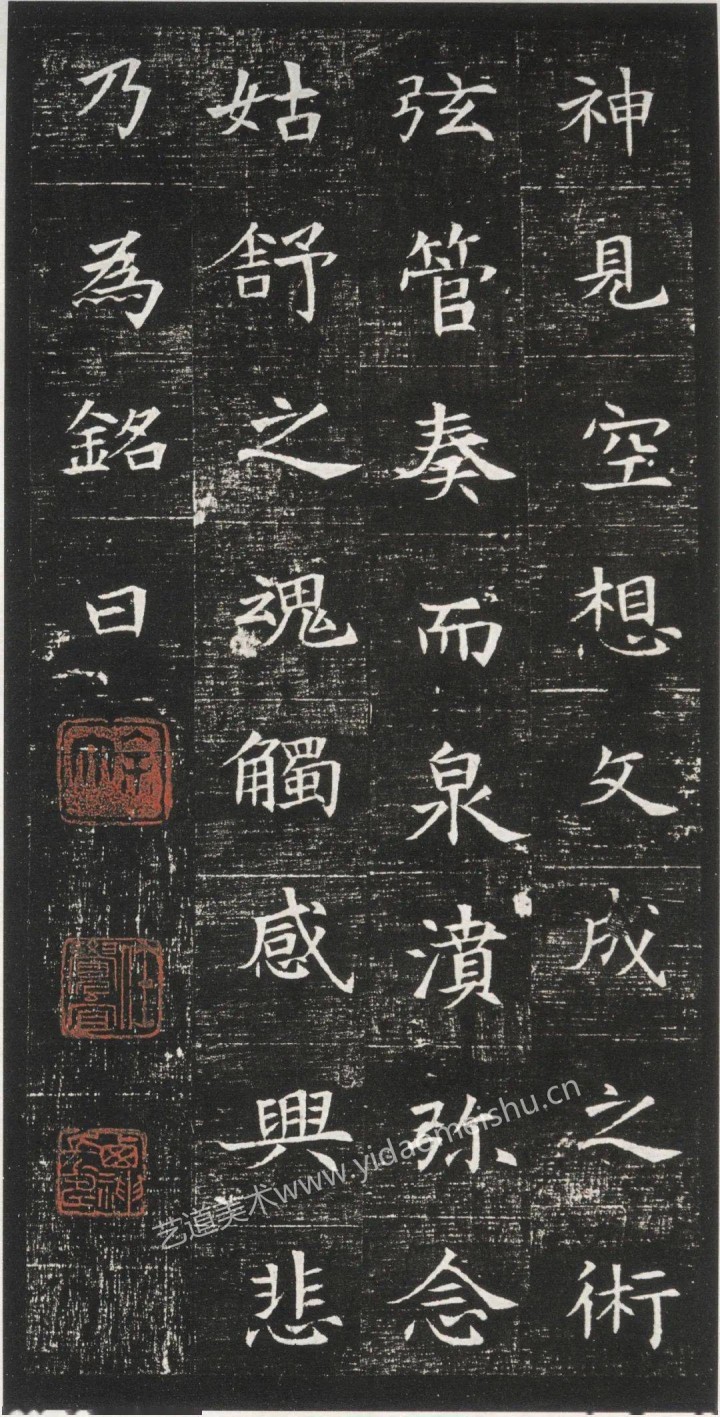 神見空想文成之術
弦管奏而泉濆弥念
姑舒之魂觸感興悲
乃為銘曰
艺道美术www.yidaomeishu.cn